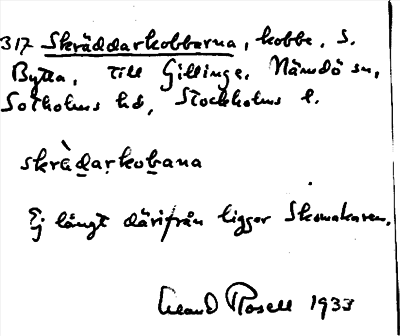 317 Skräddarkobbarna, kobbe, S.
Bytta, till Gillinge, Nämdö sn,
Sotholms hd, Stockholms l.
skrädarkobana
Ej långt därifrån ligger Skomakaren.
Rosell 1933